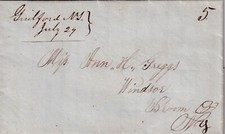 Guilford N.Y.
July 29
5
Miss Ann H. Griggs
Windsor
Broom Co
N.Y.